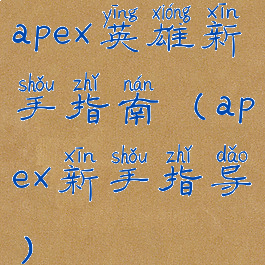 yīng xióng xīn
apex英雄新
shǒu zhǐ nán
手指南(ap
xīn shǒu zhǐ dǎo
ex新手指导
)